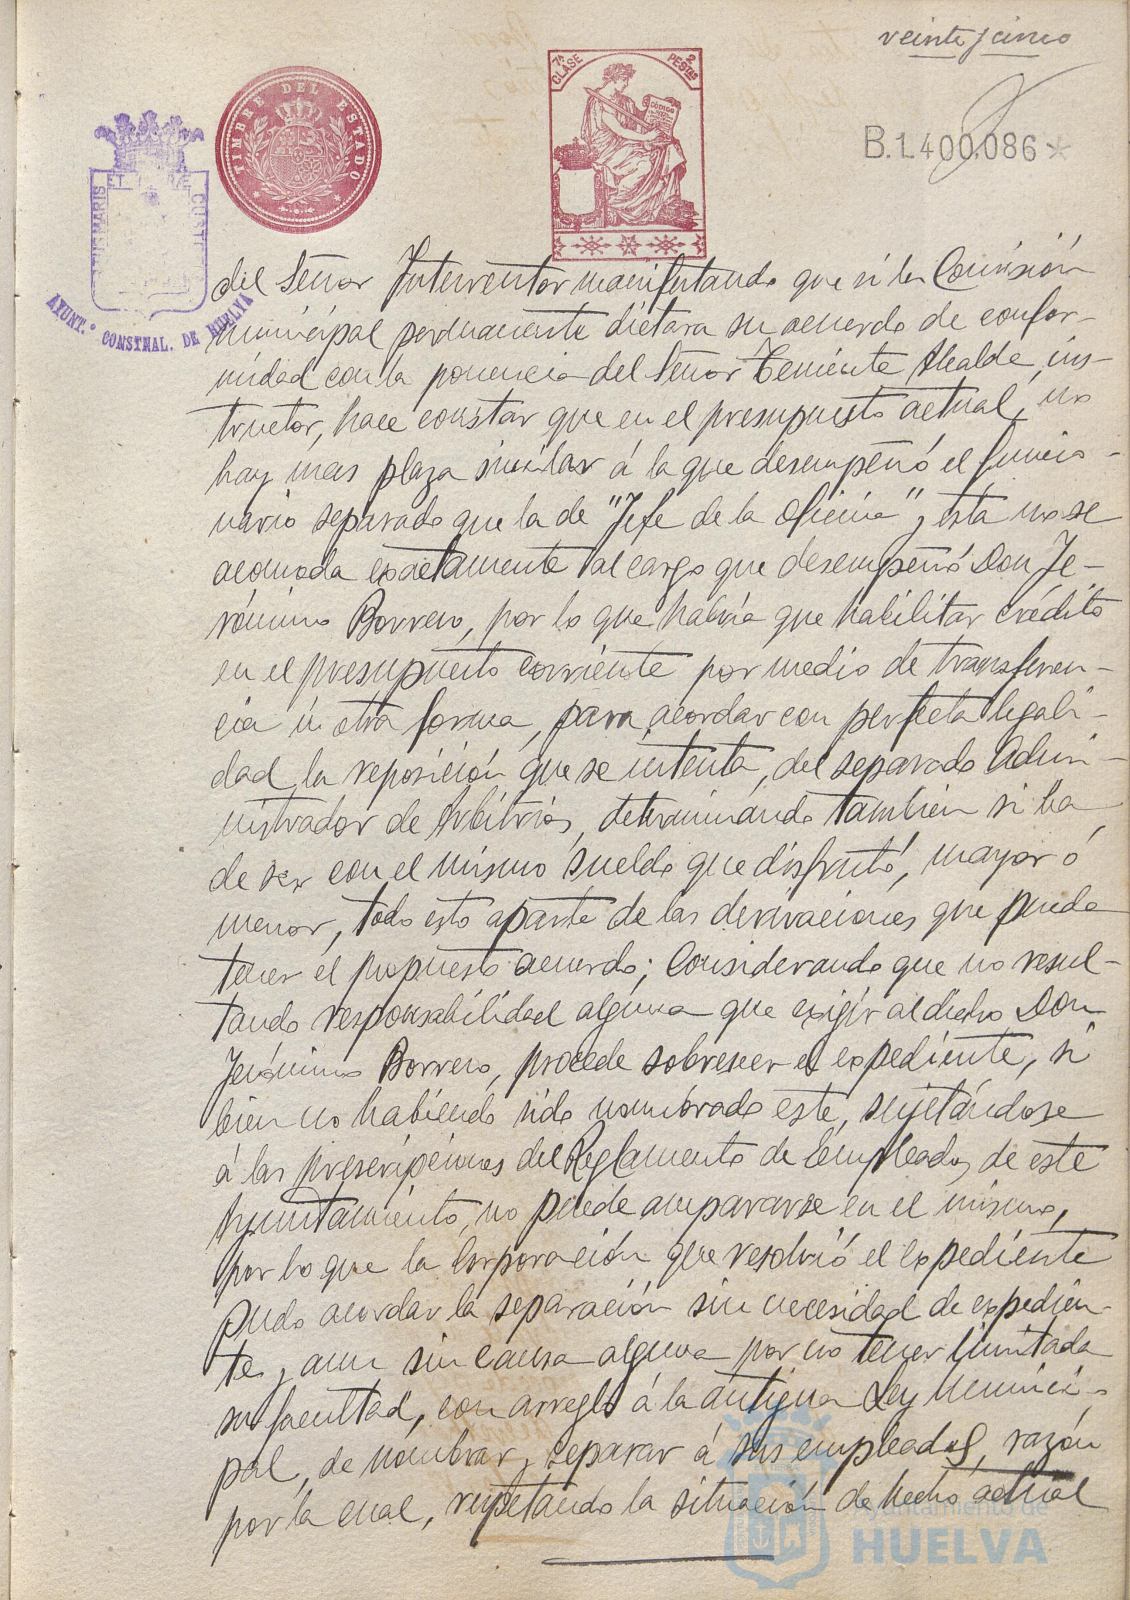 veinte y cinco
7ª CLASE 2 PESTAS
TIMBRE DEL ESTADO
B.1.400.086*
AYUNT.º CONSTNAL. DE HUELVA
del Señor Interventor manifestando que si la Comisión
municipal permanente dictara su acuerdo de confor-
midad con la ponencia del Señor Teniente Alcalde, ins-
tructor, hace constar que en el presupuesto actual, no
hay mas plaza similar á la que desempeñó el funcio-
nario separado que la de "Jefe de la oficina" y esta no se
acomoda exactamente al cargo que desempeñó Don Je-
rónimo Borrero, por lo que habria que habilitar crédito
en el presupuesto corriente por medio de transferen-
cia ú otra forma, para acordar con perfecta legali-
dad la reposición que se intenta, del separado Admi-
nistrador de Arbitrios, determinando también si ha
de ser con el mismo sueldo que disfrutó, mayor ó
menor, todo esto aparte de las derivaciones que pueda
tener el propuesto acuerdo; Considerando que no resul-
tando responsabilidad alguna que exigir al dicho Don
Jerónimo Borrero, procede sobreseer el expediente, si
bien no habiendo sido nombrado este, sujetándose
á las prescripciones del Reglamento de Empleados de este
Ayuntamiento, no puede ampararse en el mismo,
por lo que la Corporación que resolvió el expediente
pudo acordar la separación sin necesidad de expedien-
te y aun sin causa alguna por no tener limitada
su facultad, con arreglo á la antigua Ley Munici-
pal, de nombrar y separar á sus empleados, razón
por la cual, respetando la situación de hecho actual
Ayuntamiento de
HUELVA